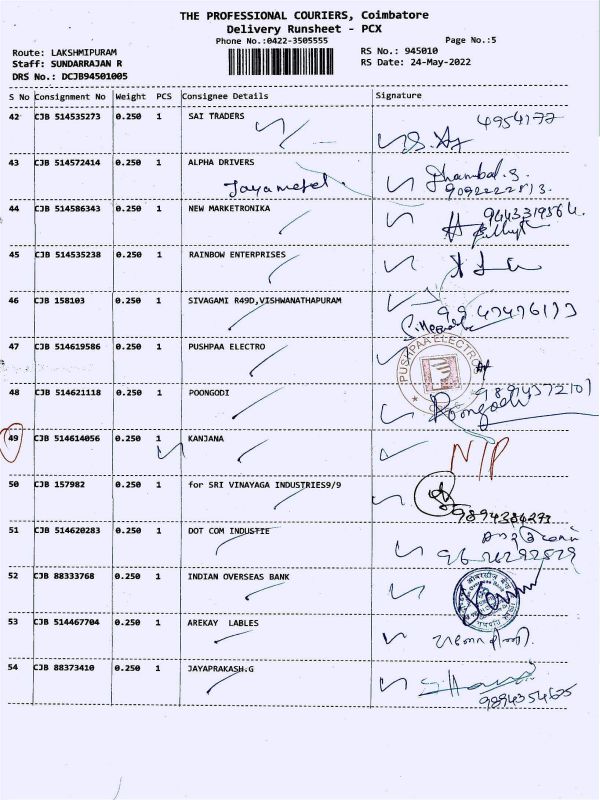 THE PROFESSIONAL COURIERS, Coimbatore
Delivery Runsheet - PCX
Phone No.:0422-3505555 Page No.:5
Route: LAKSHMIPURAM RS No.: 945010
Staff: SUNDARRAJAN R RS Date: 24-May-2022
DRS No.: DCJB94501005
S No Consignment No Weight PCS Consignee Details Signature
42 CJB 514535273 0.250 1 SAI TRADERS 4954177
43 CJB 514572414 0.250 1 ALPHA DRIVERS
44 CJB 514586343 0.250 1 NEW MARKETRONIKA
45 CJB 514535238 0.250 1 RAINBOW ENTERPRISES
46 CJB 158103 0.250 1 SIVAGAMI R49D,VISHWANATHAPURAM
47 CJB 514619586 0.250 1 PUSHPAA ELECTRO
PUSHPAA ELECTROS
48 CJB 514621118 0.250 1 POONGODI
Poongodi
49 CJB 514614056 0.250 1 KANJANA N/P
50 CJB 157982 0.250 1 for SRI VINAYAGA INDUSTRIES9/9
51 CJB 514620283 0.250 1 DOT COM INDUSTIE
52 CJB 88333768 0.250 1 INDIAN OVERSEAS BANK
53 CJB 514467704 0.250 1 AREKAY LABLES
54 CJB 88373410 0.250 1 JAYAPRAKASH.G